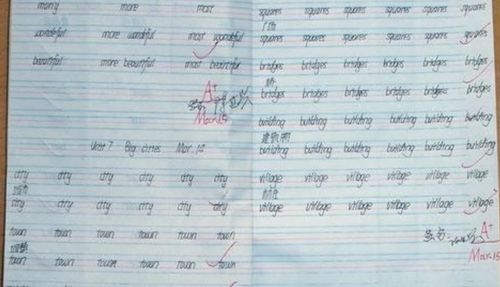 many more most
wonderful more wonderful most wonderful
beautiful more beautiful most beautiful
A+
Mar.15
Unit 7 Big cities Mar. 12
city city city city city
city city city city city
town town town town town
town town town town town
squares squares squares squares squares squares
squares squares squares squares squares squares
bridges bridges bridges bridges bridges bridges
桥
bridges bridges bridges bridges bridges bridges
building building building building building building
建筑物
building building building building building building
village village village village village village
village village village village village village
A+
Mar.15